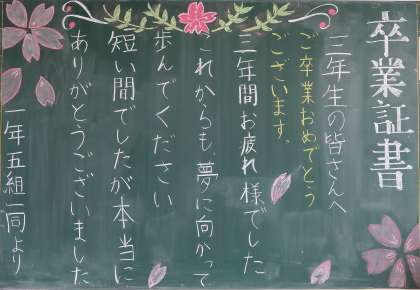 卒業証書
三年生の皆さんへ
ご卒業おめでとう
ございます。
三年間お疲れ様でした
これからも夢に向かって
歩んでください
短い間でしたが本当に
ありがとうございました
一年五組一同より